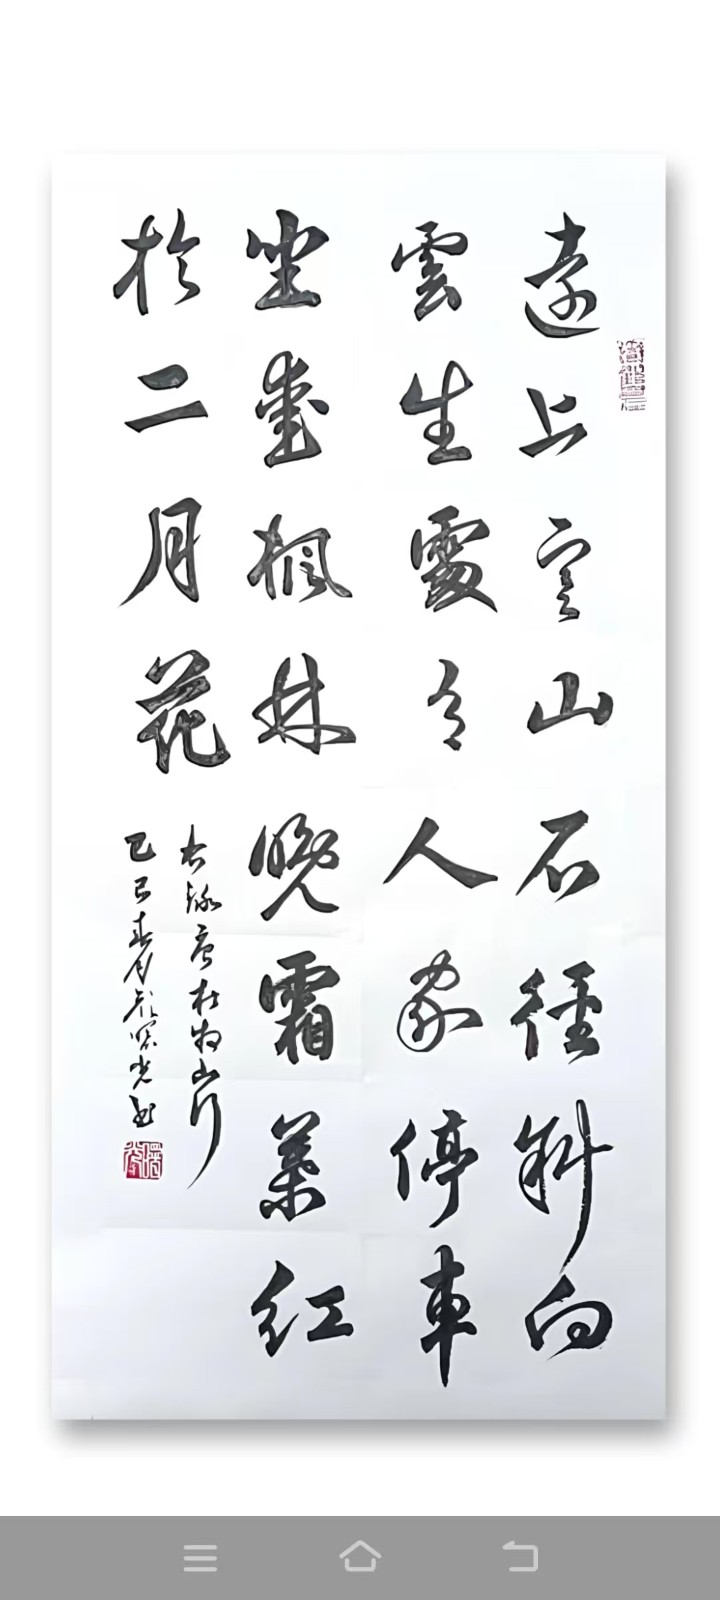 遠上寒山石徑斜白
雲生處有人家停車
坐愛楓林晚霜葉紅
於二月花
右録唐杜牧山行
乙巳春月光書